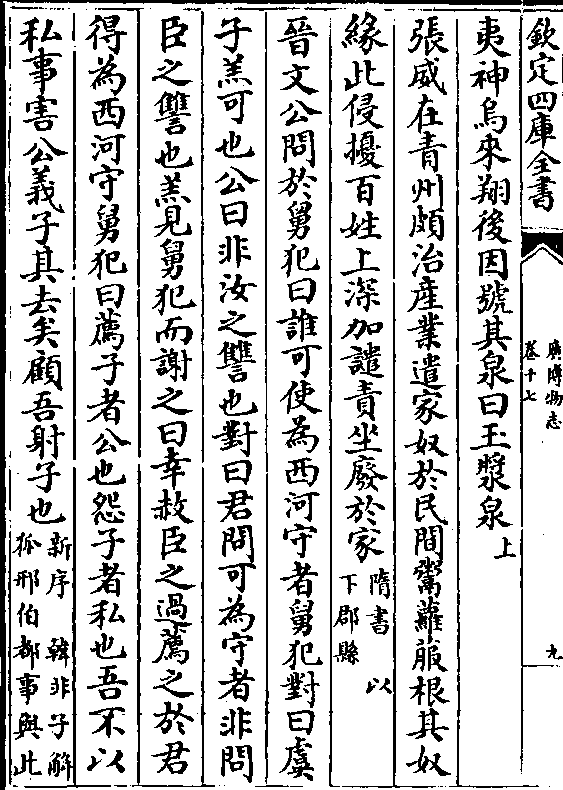 欽定四庫全書
廣博物志
卷十七
九
夷神烏來翔後因號其泉曰玉漿泉上
張威在青州頗治產業遣家奴於民間鬻蘿菔根其奴
緣此侵擾百姓上深加譴責坐廢於家隋書以
下郡縣
晉文公問於舅犯曰誰可使為西河守者舅犯對曰虞
子羔可也公曰非汝之讐也對曰君問可為守者非問
臣之讐也羔見舅犯而謝之曰幸赦臣之過薦之於君
得為西河守舅犯曰薦子者公也怨子者私也吾不以
私事害公義子其去矣顧吾射子也新序 韓非子解
狐邢伯都事與此